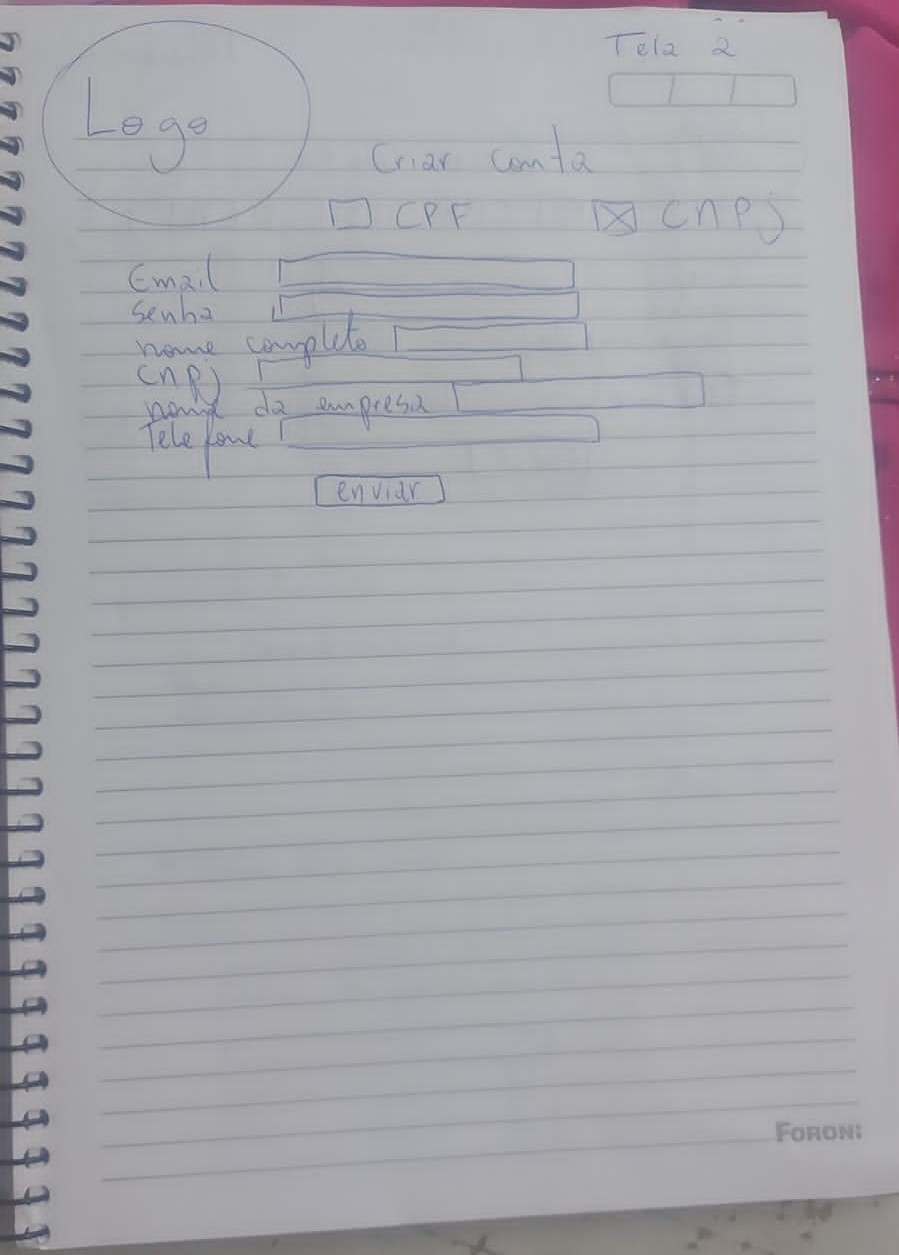 Tela 2
Logo
Criar conta
CPF CNPj
Email
Senha
nome completo
Cnpj
nome da empresa
Telefone
enviar
FORONI